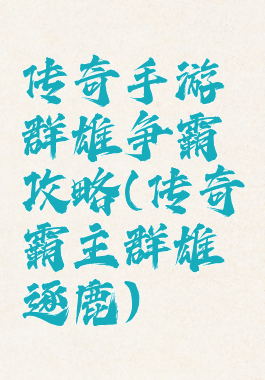 传奇手游
群雄争霸
攻略(传奇
霸主群雄
逐鹿)